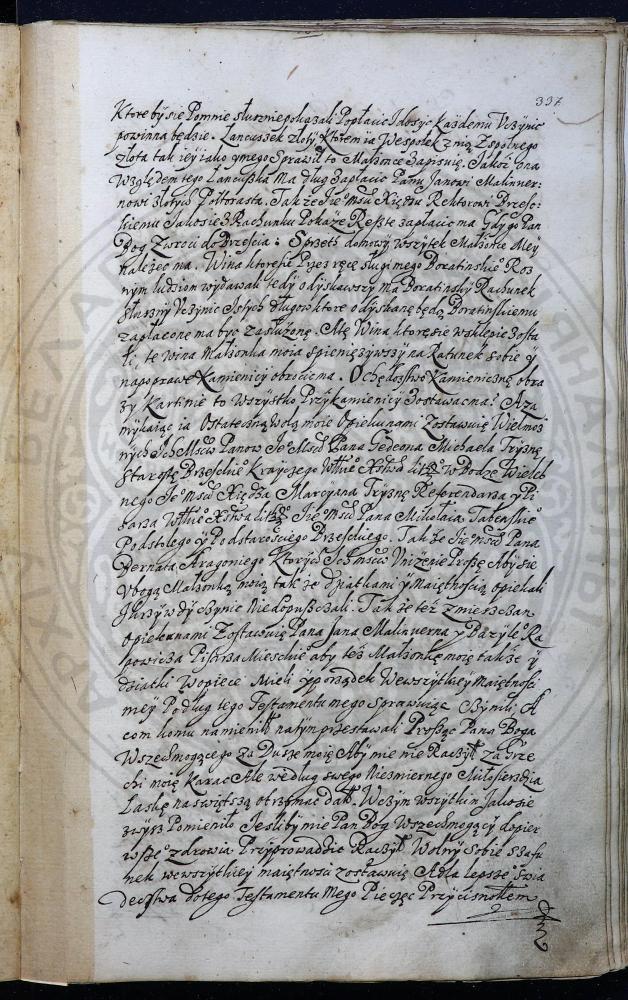 337
Ktore by się Pomnie słusznie pokazali Popłacic I dosyc Każdemu Uczynic
powinna będzie. Lancuszek złoty Ktorem ia Wespołek z nią Zspolnego
złota tak iey iako y mego Sprawił to Małzonce Zapisuię. Jakoż ona
Względem tego Lancuszka Ma dług Zapłacic Panu Janowi Malinwer-
nowi złotych Połtorasta. Także Je Mscu Xiędzu Rektorowi Brzesc-
skiemu Jako się z Rachunku Pokaże Resztę zapłacic ma Gdy go Pan
Bog Zwroci do Brzescia: Sprzęt domowy wszytek Małzonce Mey
należec ma. Wina ktore się Przez ręce sługi mego Boratinskie° Roz
nym ludziom wydawali tedy odyskawszy ma Boratinsky Rachunek
słuszny Uczynic Z tych długow ktore odyskane będą Boratinskiemu
zapłacone ma byc zasłużone. Ale Wina ktore się w sklepie Zosta
li, te wina Małzonka moia spieniężywszy na Ratunek sobie y
na poprawę Kamienicy obrocic ma. Ochędostwo Kamieniczne obra
zy Kartinie to Wszystko Przy kamienicy Zostawac ma. A za
mykaiąc ia Ostateczną Wolą moię Opiekunami Zostawuię Wielmoz
nych Ich Mscw Panow Je° Mscu Pana Gedeona Michaela Tryznę
Starostę Brzeskie° Kraycze° W° Xstwa Lit° w Bodze Wieleb
nego Je° Mscu Xiędza Marcyana Tryznę Referendarza y Pi
sarza W° Xstwa Lit° Je° Mscu Pana Mikołaia
Podstolego y Podstarosciego Brzeskiego. Także Je° Mscu Pana
Bernata Aragoniego Ktorych Ich Mscw Uniżenie Proszę Aby się
Ubogą Małzonką moią także dziatkami y Maiętnoscią opiekali
I krzywdy czynic Nie dopuszczali. Także też z mieszczan
Opiekunami Zostawuię Pana Jana Malinwerna y Bazyle° Ra
powicza Pisarza Mieskie° aby też Małzonkę moię także y
dziatki W opiece Mieli y porządek We wszytkiey Maiętnosci
mey Podług tego Testamentu mego Sprawuiąc Czynili. A
com komu namienił na tym przestawali Prosząc Pana Boga
Wszechmogącego Za Duszę moię Aby mie nie Raczył za Grze
chi moię Karac Ale według swego Niesmiernego Miłosierdzia
Łaskę naswiętszą otrzymac dał. W czym wszytkim Jako się
zwysz Pomieniło Jesliby mie Pan Bog Wszechmogący do pier
wsze° zdrowia Przyprowadzic Raczył Wolny Sobie Szafu
nek we wszytkiey maiętnosci zostawuię A dla lepsze° Swia
dectwa do tego Testamentu Mego Pieczęc Przycisnołem